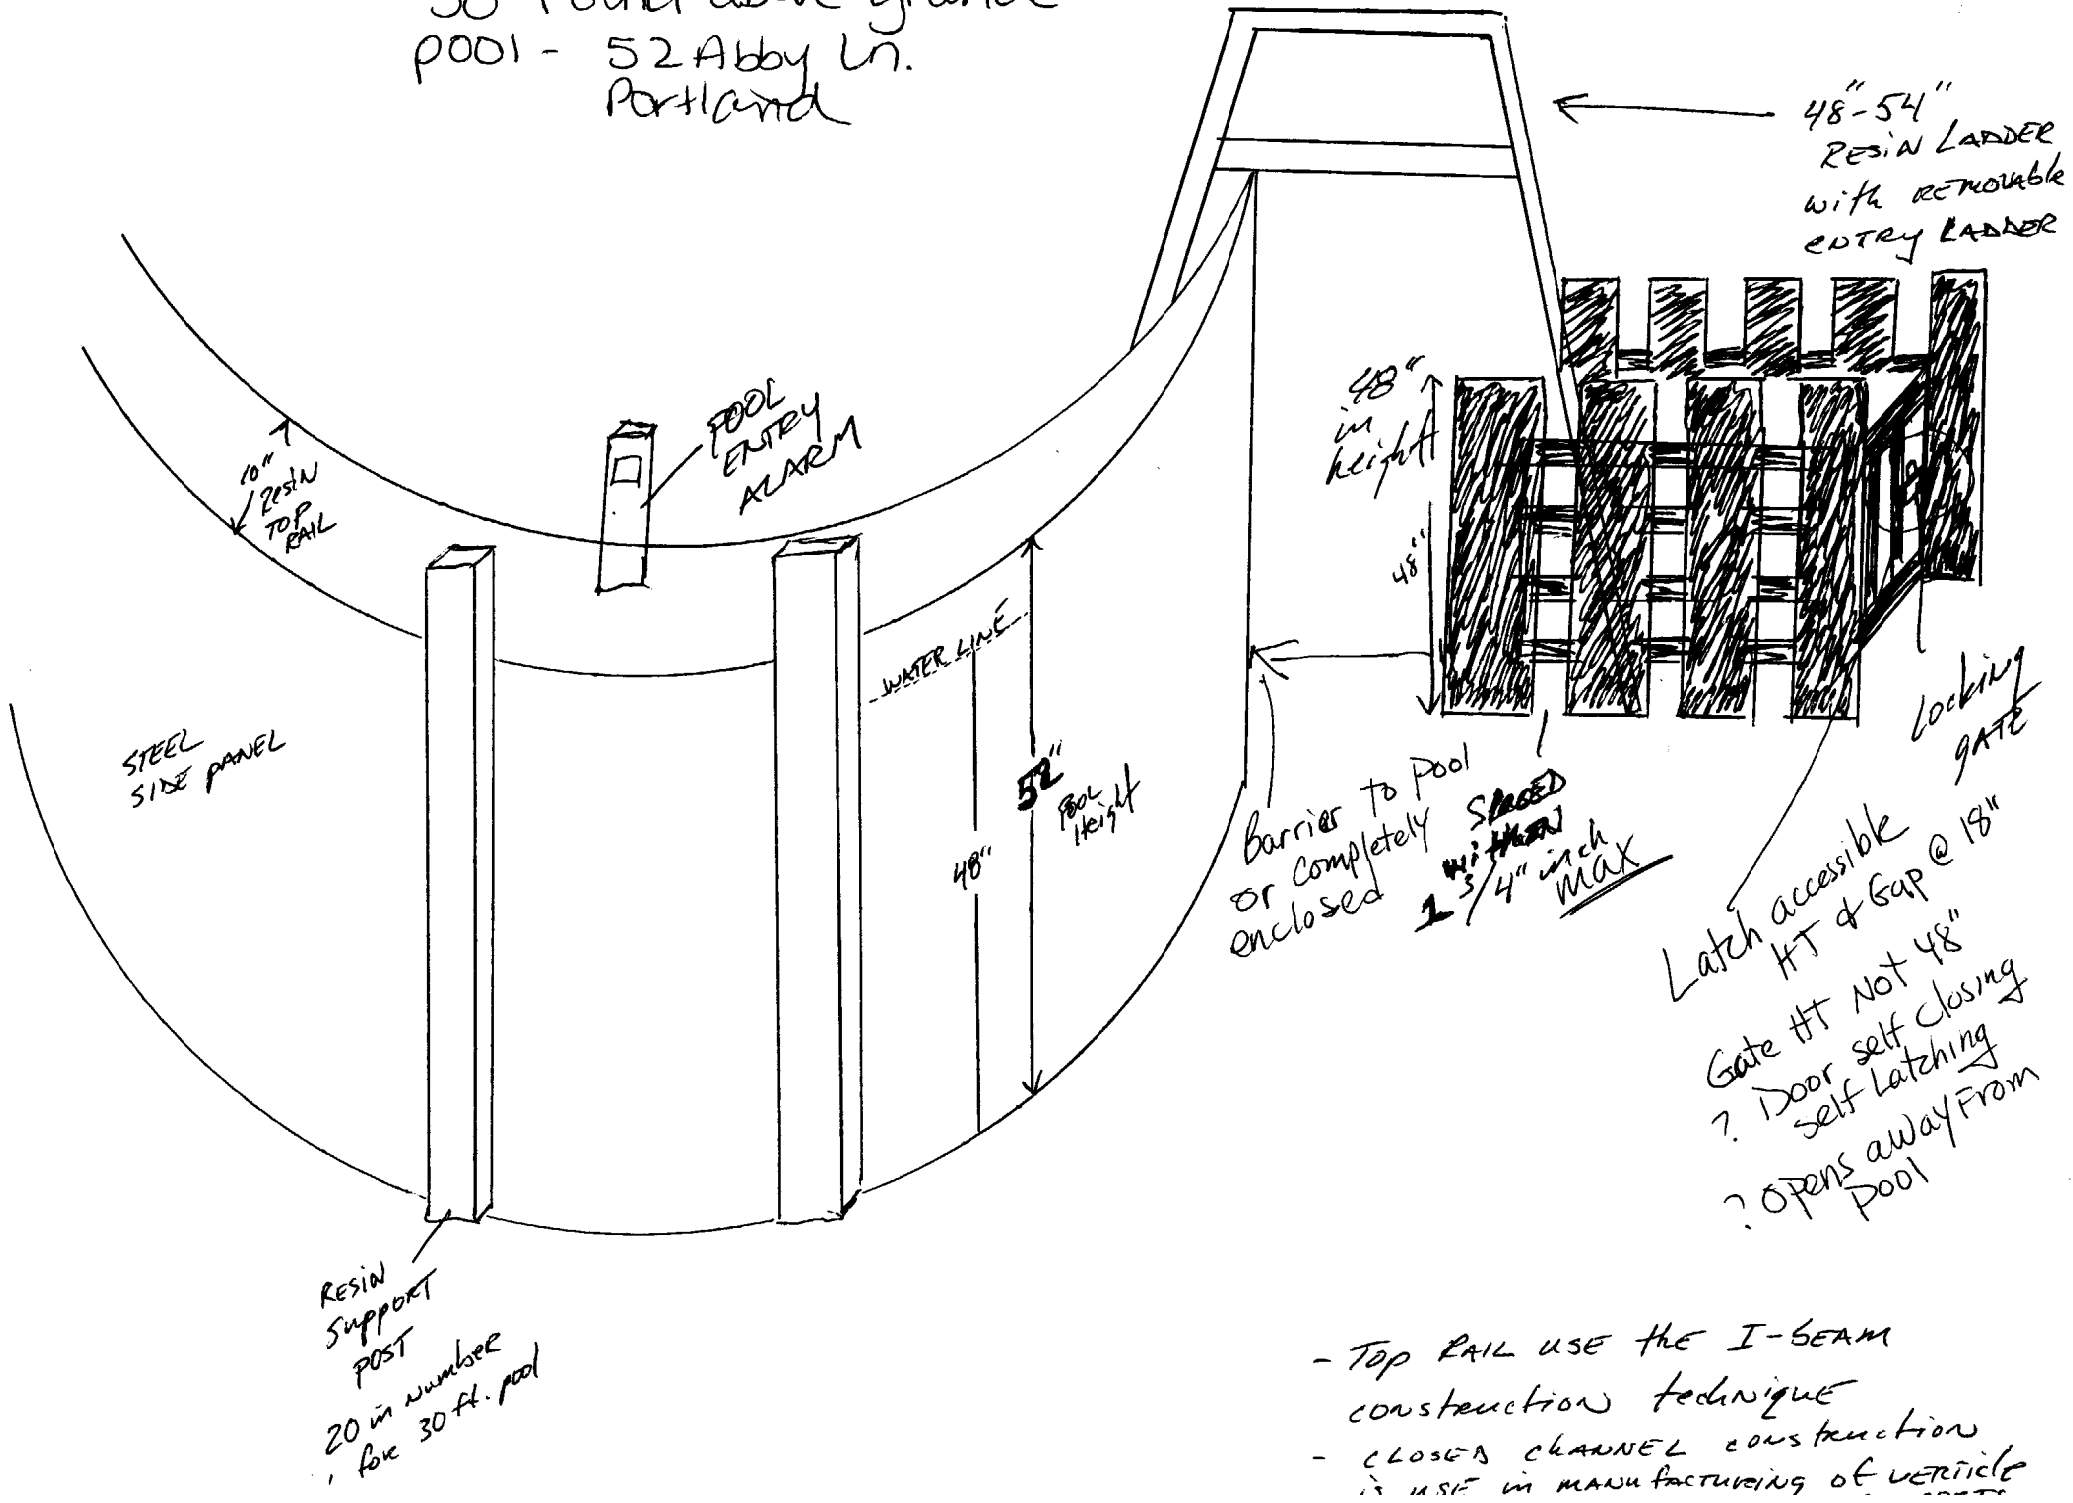 30' round above ground
pool - 52 Abby Ln.
Portland
48"-54"
RESIN LADDER
with REMOVABLE
ENTRY LADDER
POOL
ENTRY
ALARM
10"
RESIN
TOP
RAIL
48"
in
height
48"
WATER LINE
STEEL
SIDE PANEL
52"
POOL
Height
48"
Barrier to pool
or completely
enclosed
SPACED
1 3/4" inch
MAX
Locking
gATE
Latch accessible
HT & Gap @ 18"
Gate HT NOT 48"
? Door self closing
self Latching
? opens away From
pool
RESIN
Support
POST
20 in number
for 30 ft. pool
- TOP RAIL USE thE I-bEAM
construction technique
- CLOSED CHANNEL construction
is USE in MANUfACTURING Of VERTICLE